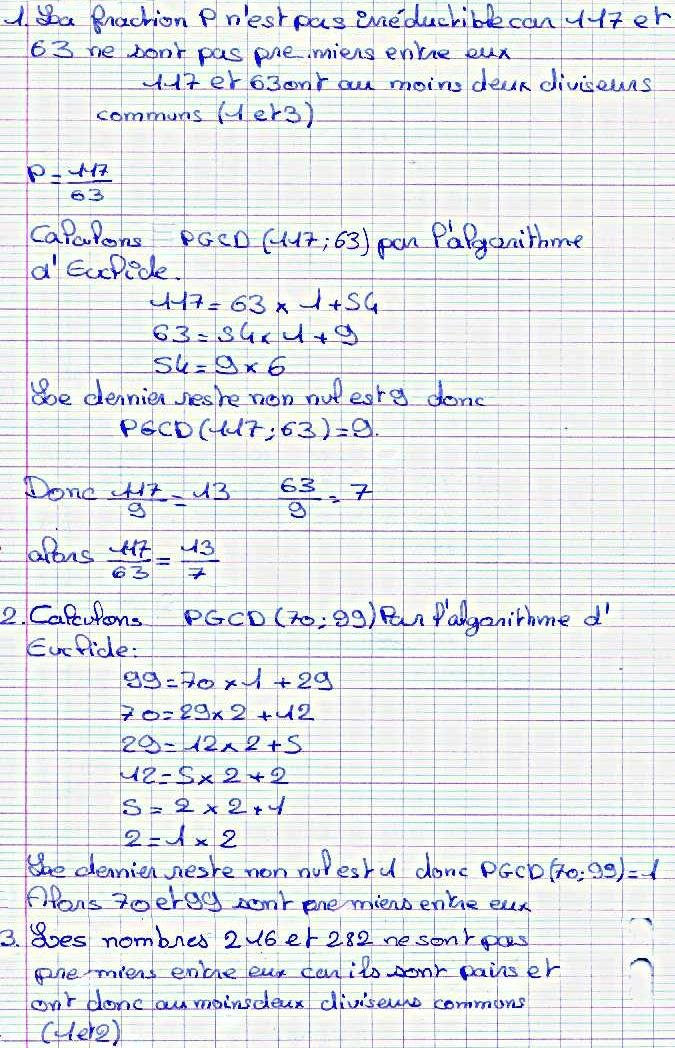 1. La fraction P n'est pas irréductible car 117 et
63 ne sont pas premiers entre eux
117 et 63 ont au moins deux diviseurs
communs (1 et 3)
P = 117/63
Calculons PGCD (117; 63) par l'algorithme
d'Euclide.
117 = 63 × 1 + 54
63 = 54 × 1 + 9
54 = 9 × 6
Le dernier reste non nul est 9 donc
PGCD (117; 63) = 9.
Donc 117/9 = 13 63/9 = 7
alors 117/63 = 13/7
2. Calculons PGCD (70; 99) Par l'algorithme d'
Euclide:
99 = 70 × 1 + 29
70 = 29 × 2 + 12
29 = 12 × 2 + 5
12 = 5 × 2 + 2
5 = 2 × 2 + 1
2 = 1 × 2
Le dernier reste non nul est 1 donc PGCD (70; 99) = 1
Alors 70 et 99 sont premiers entre eux
3. Les nombres 216 et 282 ne sont pas
premiers entre eux car ils sont pairs et
ont donc au moins deux diviseurs communs
(1 et 2)